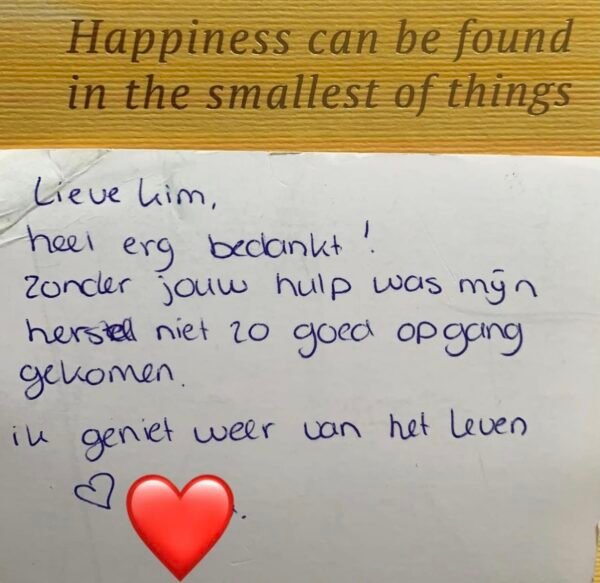 Happiness can be found
in the smallest of things
Lieve Kim,
heel erg bedankt!
zonder jouw hulp was mijn
herstel niet zo goed op gang
gekomen.
ik geniet weer van het leven